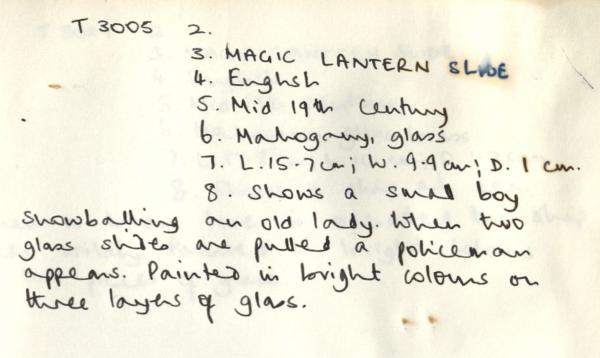 T 3005 2.
3. MAGIC LANTERN SLIDE
4. English
5. Mid 19th Century
6. Mahogany, glass
7. L.15.7cm; W. 9.9cm; D. 1 cm.
8. Shows a small boy
snowballing an old lady. When two
glass slides are pulled a policeman
appears. Painted in bright colours on
three layers of glass.